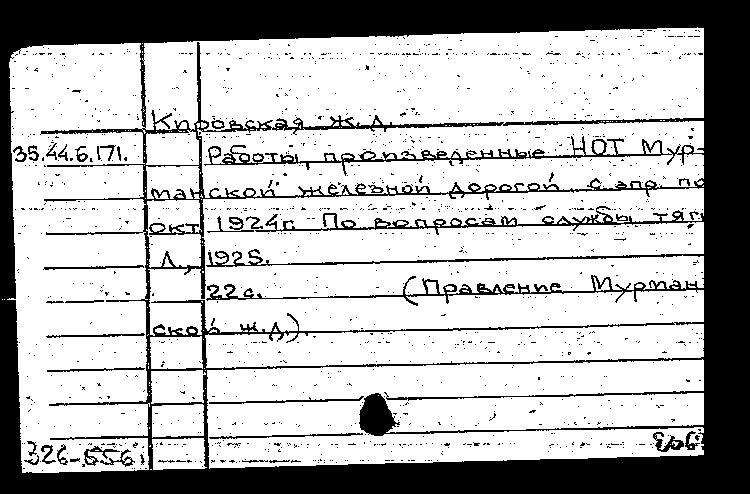 Кировская ж.д.
35.44.6.171. Работы, произведенные НОТ Мур-
манской железной дорогой с апр. по
окт. 1924г. По вопросам службы тяги
Л., 1925.
22 с. (Правление Мурман
ской ж.д.).
326-556